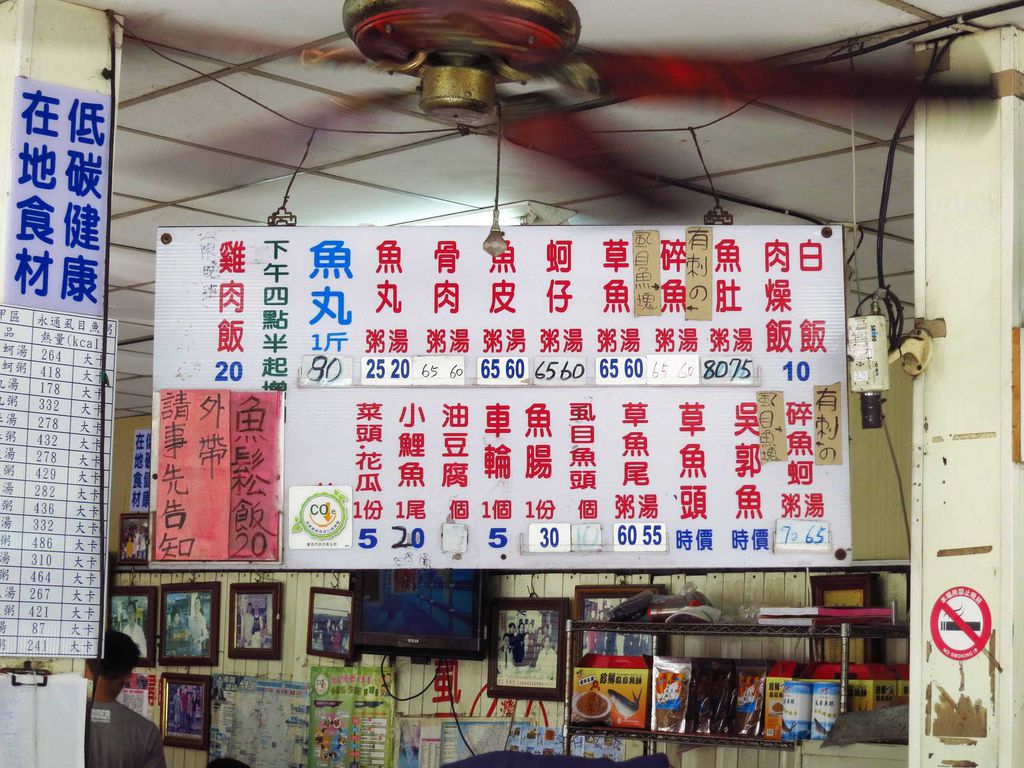 低碳健康
在地食材
白飯 10
肉燥飯
魚肚 粥湯 80 75
有刺の
碎魚 粥湯 65 60
虱目魚塊
草魚 粥湯 65 60
蚵仔 粥湯 65 60
魚皮 粥湯 65 60
骨肉 粥湯 65 60
魚丸 粥湯 25 20
魚丸 1斤 80
下午四點半起增
雞肉飯 20
有刺の
碎魚蚵 粥湯 70 65
虱目魚塊
吳郭魚 時價
草魚頭 時價
草魚尾 粥湯 60 55
虱目魚頭 個
魚腸 1份 30
車輪 1個 5
油豆腐 個
小鯉魚 1尾 20
菜頭花瓜 1份 5
魚鬆飯20
外帶
請事先告知
在地食材
永通虱目魚粥
熱量(kcal
蚵湯 264 大卡
蚵粥 418 大卡
湯 178 大卡
粥 332 大卡
湯 278 大卡
粥 432 大卡
湯 278 大卡
粥 429 大卡
湯 282 大卡
粥 436 大卡
湯 332 大卡
粥 486 大卡
湯 310 大卡
粥 464 大卡
湯 267 大卡
粥 421 大卡
湯 87 大卡
粥 241 大卡
本場所禁止吸菸
NO SMOKING
虱